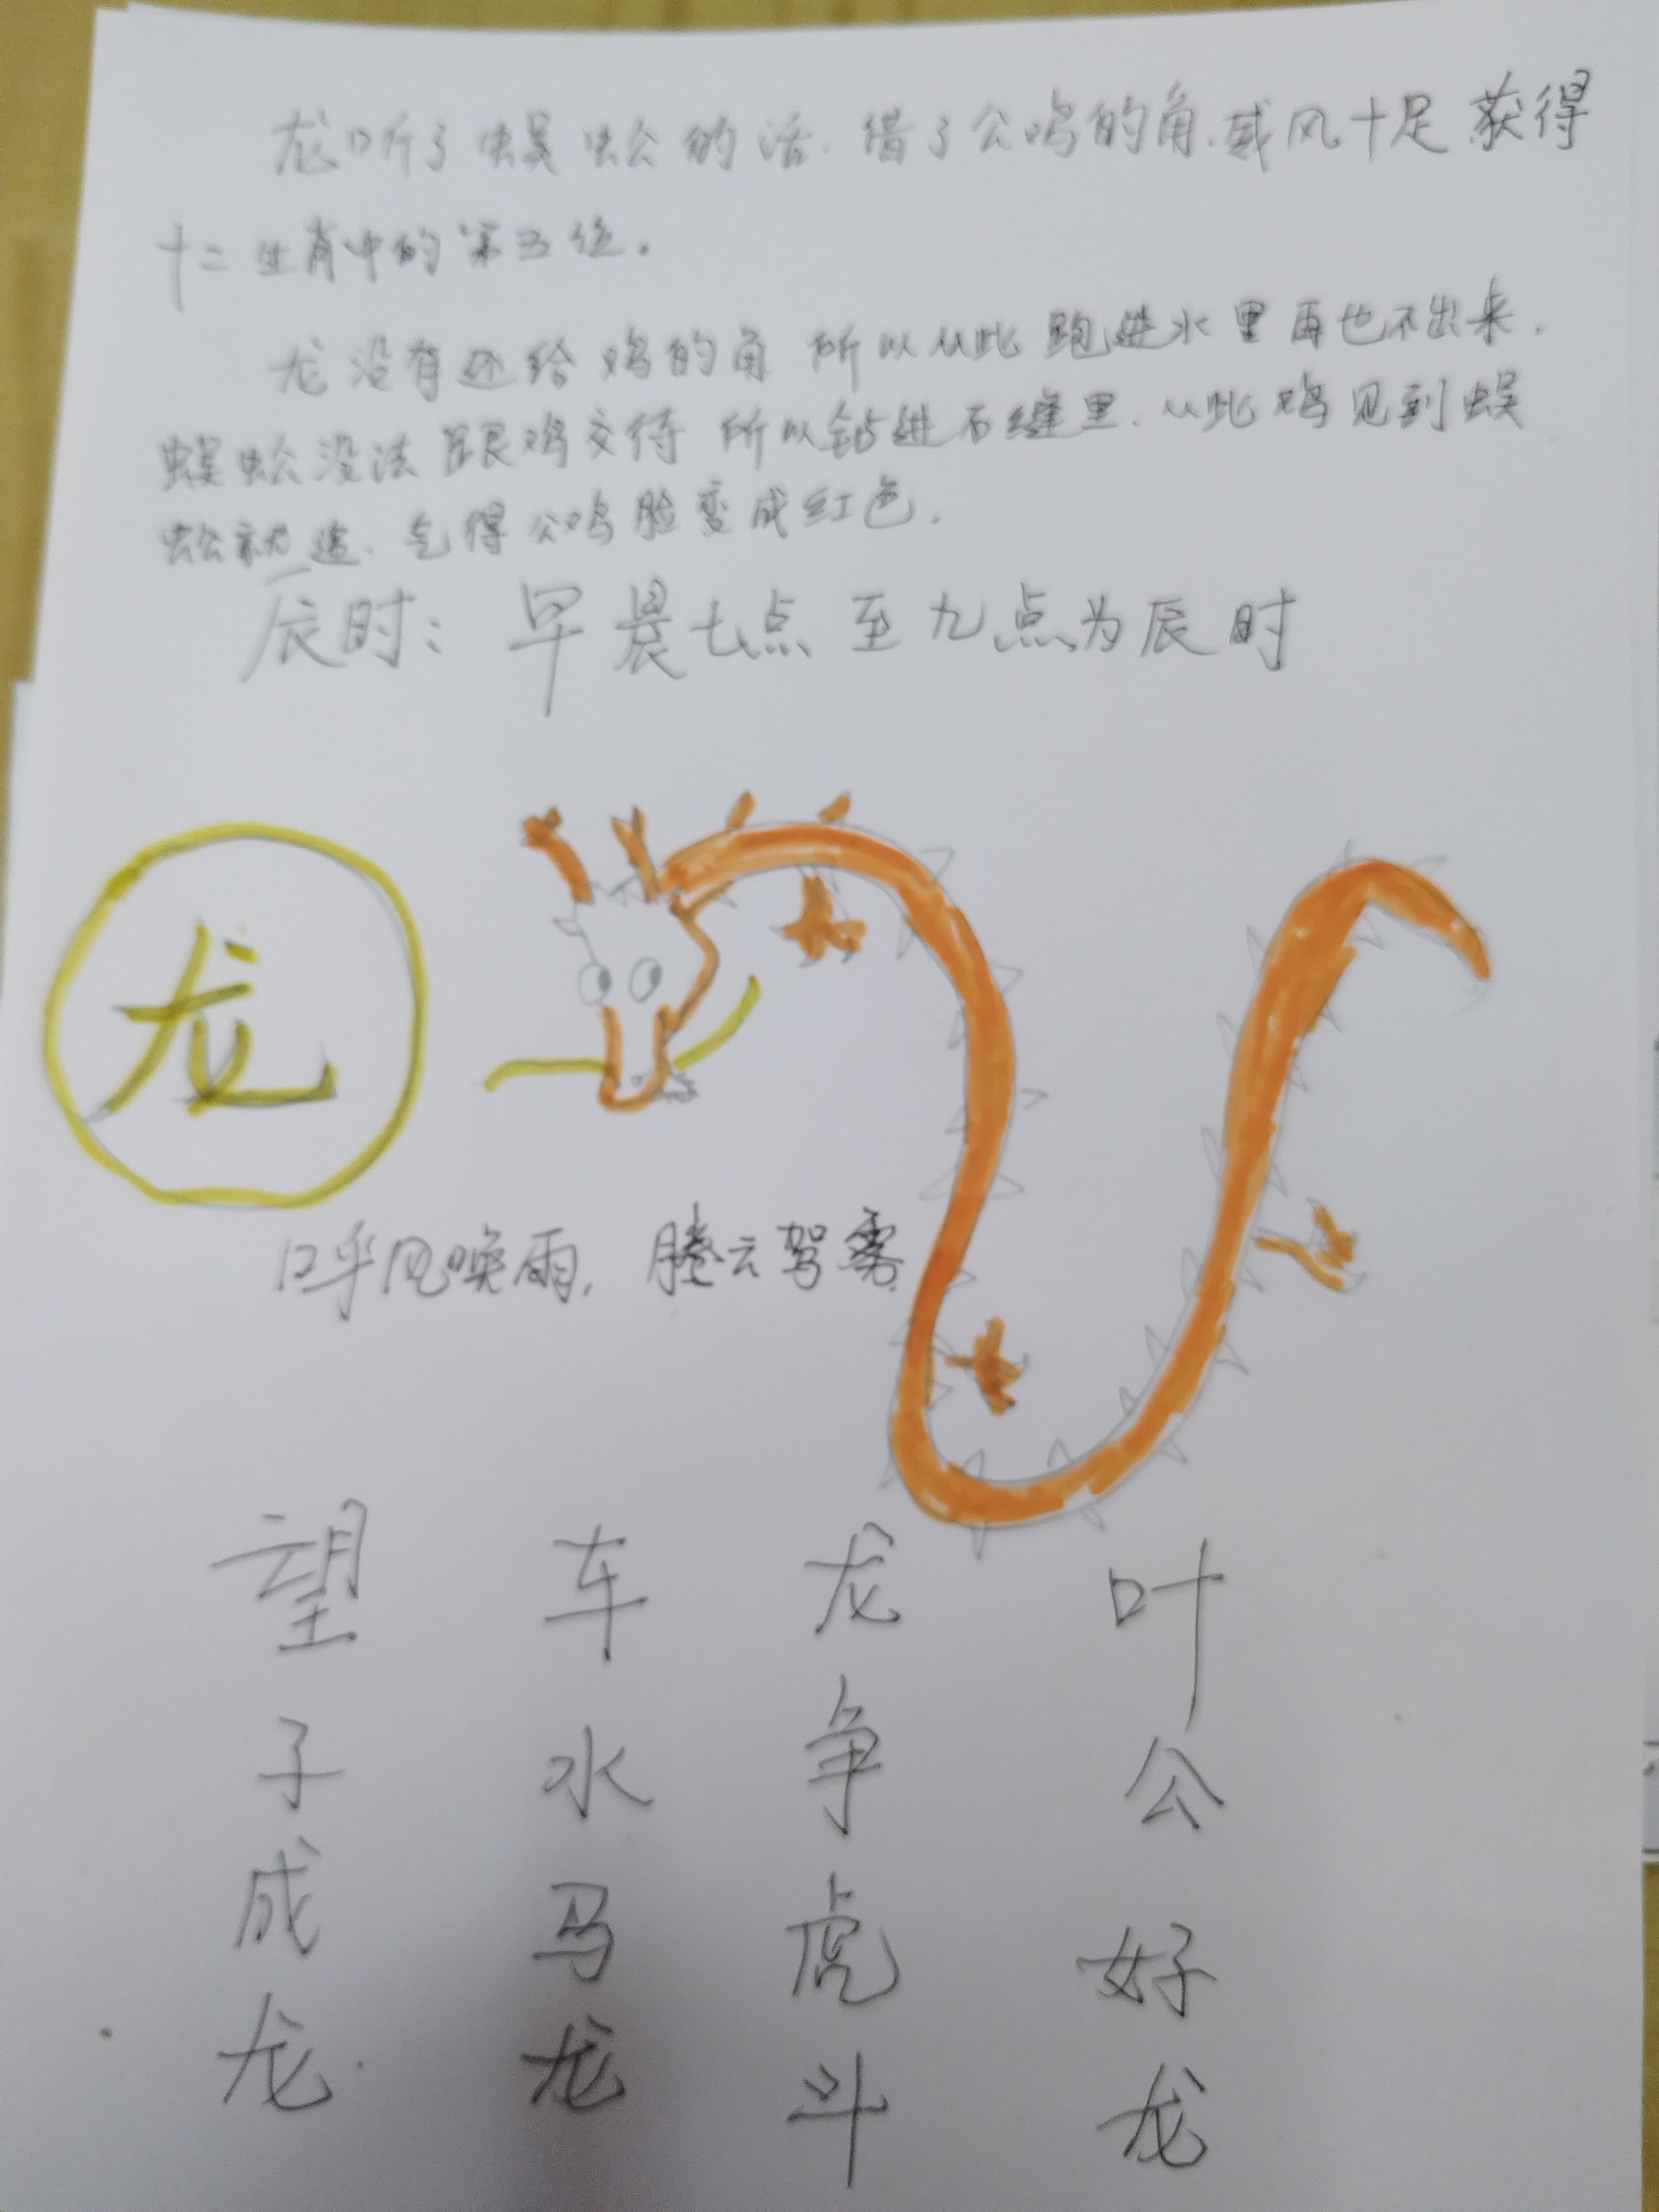 龙听了蜈蚣的话.借了公鸡的角.威风十足获得
十二生肖中的第五位。
龙没有还给鸡的角 所以从此跑进水里再也不出来.
蜈蚣没法跟鸡交待 所以钻进石缝里.从此鸡见到蜈
蚣就追.气得公鸡脸变成红色.
辰时:早晨七点至九点为辰时
龙
呼风唤雨,腾云驾雾
望子成龙.
车水马龙
龙争虎斗
叶公好龙